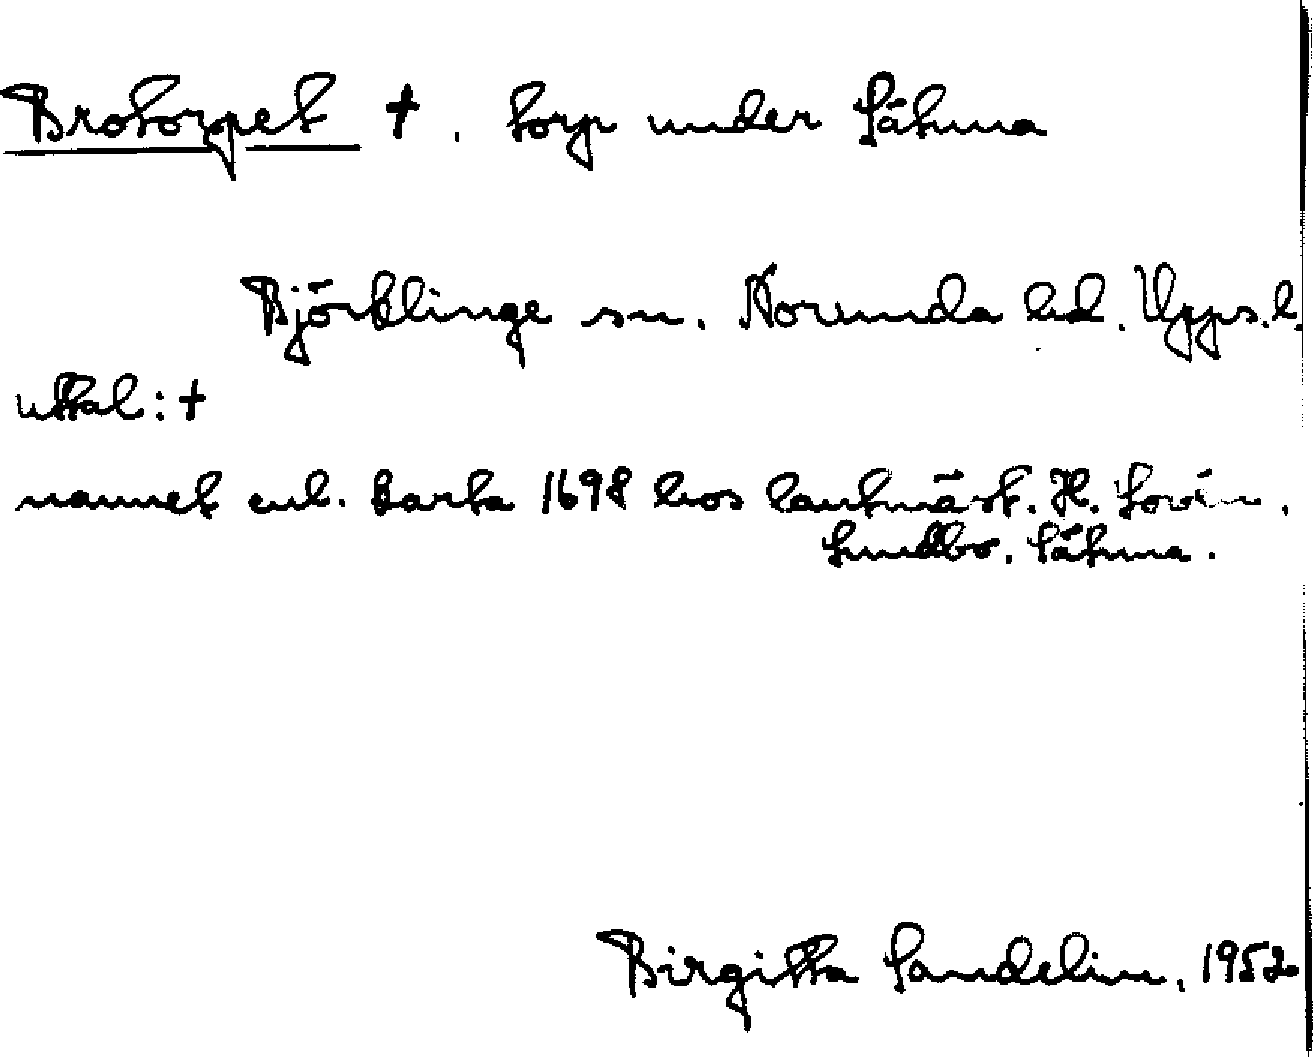 Brotorpet †. torp under Sätuna
Björklinge sn. Norunda hd. Upps.l.
uttal: †
namnet enl. karta 1698 hos lantmäst. H. Lovén.
Lundbo. Sätuna.
Birgitta Sandelin, 1952